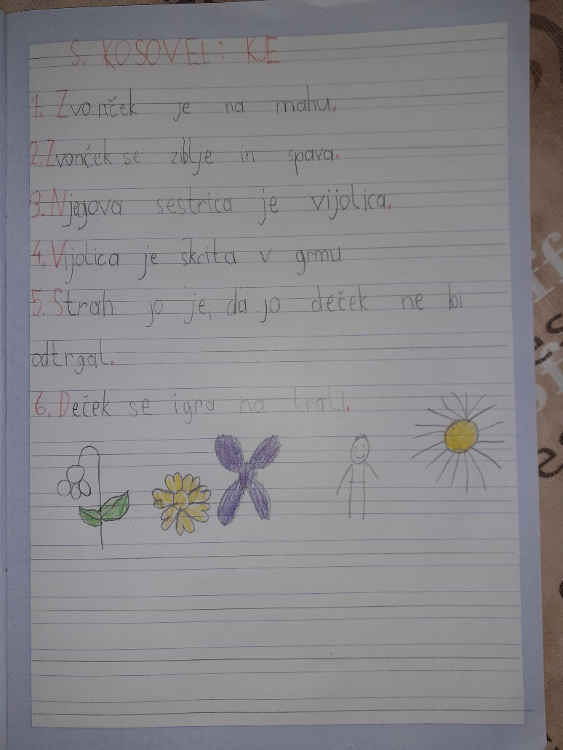 S. KOSOVEL: KJE
1. Zvonček je na mahu.
2. Zvonček se ziblje in spava.
3. Njegova sestrica je vijolica.
4. Vijolica je skrita v grmu
5. Strah jo je, da jo deček ne bi
odtrgal.
6. Deček se igra na trati.